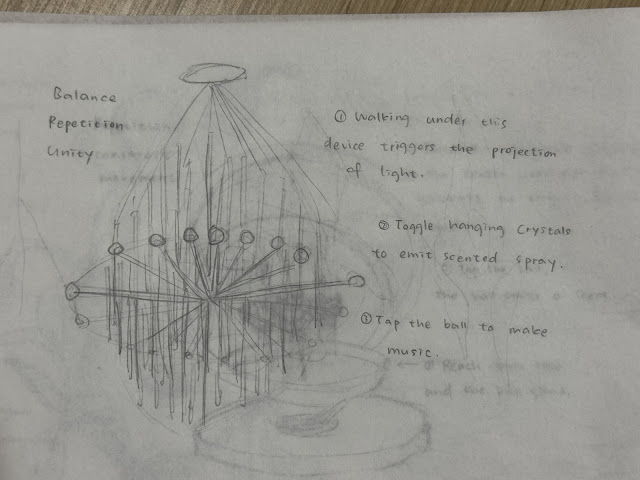 Balance
Repetition
Unity
① Walking under this
device triggers the projection
of light.
② Toggle hanging crystals
to emit scented spray.
③ Tap the ball to make
music.